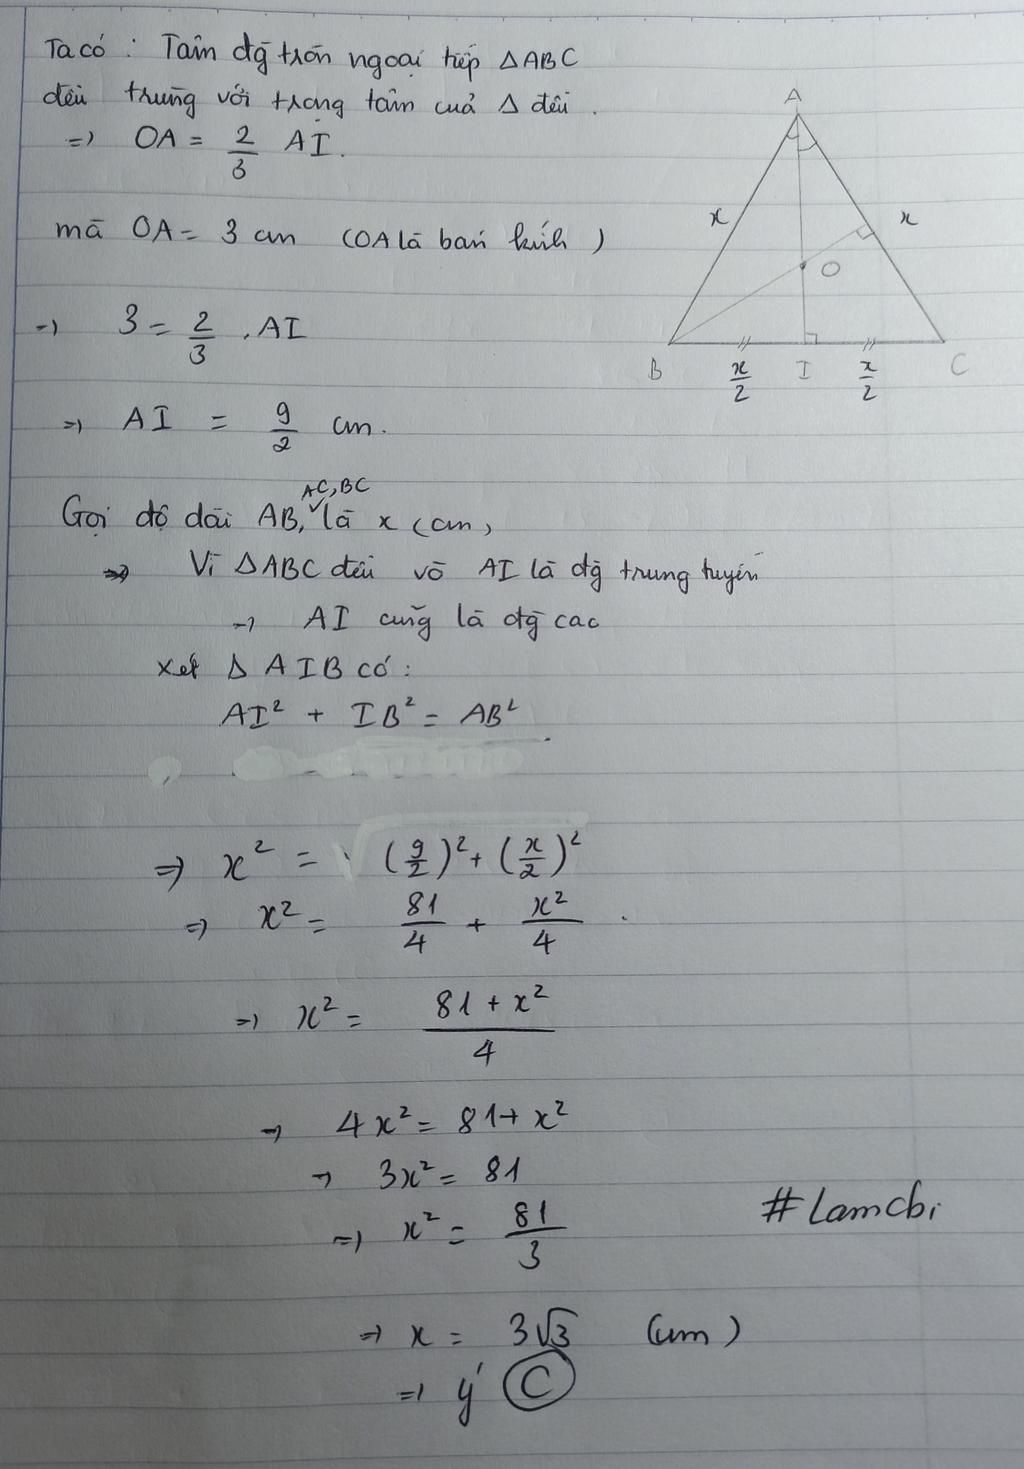 Ta có : Tâm đg tròn ngoại tiếp ΔABC
đều trùng với trọng tâm của Δ đều .
=> OA = 2/3 AI.
mà OA = 3 cm (OA là bán kính)
=> 3 = 2/3 . AI
=> AI = 9/2 cm.
Gọi độ dài AB, AC, BC là x (cm)
=> Vì ΔABC đều và AI là đg trung tuyến
=> AI cũng là đg cao
Xét Δ AIB có :
AI² + IB² = AB²
=> x² = (9/2)² + (x/2)²
=> x² = 81/4 + x²/4 .
=> x² = (81 + x²)/4
=> 4x² = 81 + x²
=> 3x² = 81
=> x² = 81/3
=> x = 3√3 (cm)
=> ý C
#Lamchi
A
x
x
O
B
x/2
I
x/2
C